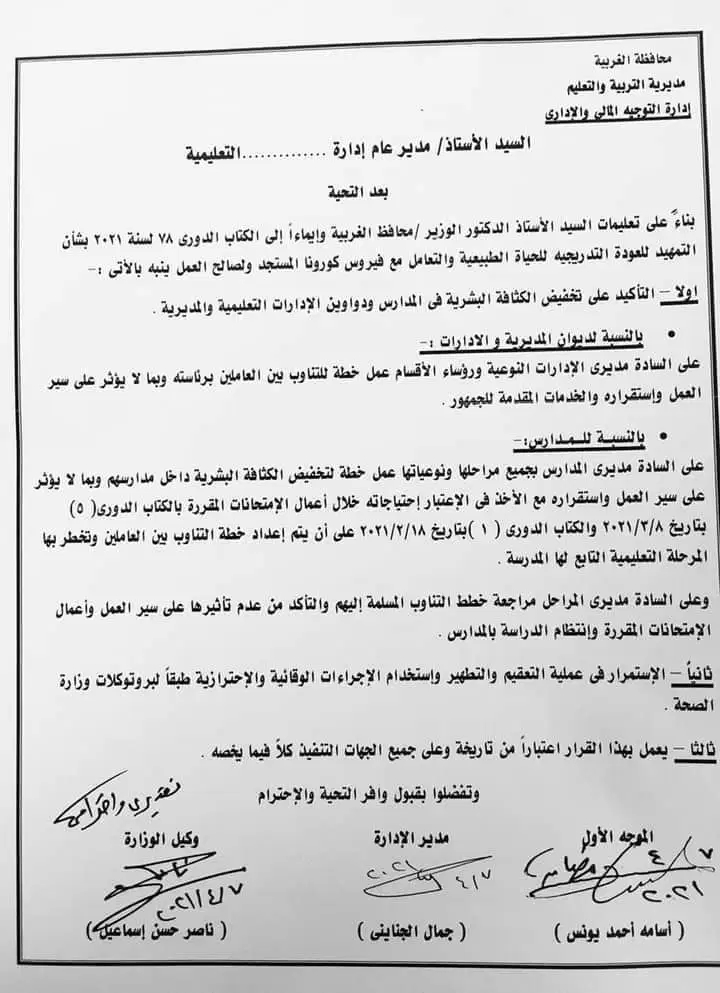 محافظة الغربية
مديرية التربية والتعليم
إدارة التوجيه المالى والإدارى
السيد الأستاذ/ مدير عام إدارة ..............التعليمية
بعد التحية
بناءً على تعليمات السيد الأستاذ الدكتور الوزير /محافظ الغربية وإيماءاً إلى الكتاب الدورى ٧٨ لسنة ٢٠٢١ بشأن
التمهيد للعودة التدريجيه للحياة الطبيعية والتعامل مع فيروس كورونا المستجد ولصالح العمل ينبه بالأتى :-
اولا – التأكيد على تخفيض الكثافة البشرية فى المدارس ودواوين الإدارات التعليمية والمديرية .
• بالنسبة لديوان المديرية و الادارات :-
على السادة مديرى الإدارات النوعية ورؤساء الأقسام عمل خطة للتناوب بين العاملين برئاسته وبما لا يؤثر على سير
العمل وإستقراره والخدمات المقدمة للجمهور .
• بالنسبة للمدارس:-
على السادة مديرى المدارس بجميع مراحلها ونوعياتها عمل خطة لتخفيض الكثافة البشرية داخل مدارسهم وبما لا يؤثر
على سير العمل واستقراره مع الأخذ فى الإعتبار إحتياجاته خلال أعمال الإمتحانات المقررة بالكتاب الدورى( ٥)
بتاريخ ٢٠٢١/٣/٨ والكتاب الدورى ( ١ )بتاريخ ٢٠٢١/٢/١٨ على أن يتم إعداد خطة التناوب بين العاملين وتخطر بها
المرحلة التعليمية التابع لها المدرسة .
وعلى السادة مديرى المراحل مراجعة خطط التناوب المسلمة إليهم والتأكد من عدم تأثيرها على سير العمل وأعمال
الإمتحانات المقررة وإنتظام الدراسة بالمدارس .
ثانياً – الإستمرار فى عملية التعقيم والتطهير وإستخدام الإجراءات الوقائية والإحترازية طبقاً لبروتوكلات وزارة
الصحة .
ثالثا – يعمل بهذا القرار اعتباراً من تاريخة وعلى جميع الجهات التنفيذ كلاً فيما يخصه .
وتفضلوا بقبول وافر التحية والإحترام
الموجه الأول مدير الإدارة وكيل الوزارة
٤/٧ ٢٠٢١
٤/٧ ٢٠٢١
٢٠٢١/٤/٧
( أسامه أحمد يونس ) ( جمال الجناينى ) ( ناصر حسن إسماعيل )